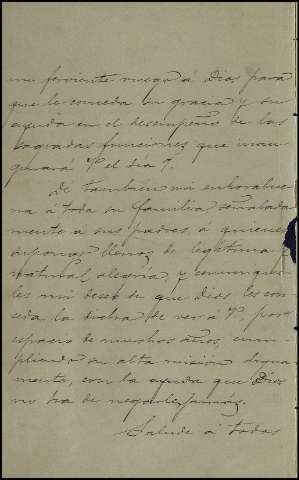 mi ferviente ruego á Dios para
que le conceda su gracia y su
ayuda en el desempeño de las
sagradas funciones que inau-
gurará V. el día 9.
Dé tambien mi enhorabue-
na á toda su familia, señalada
mente á sus padres, á quienes
supongo llenos de legítima y
natural alegría, y comuníque
les mi deseo de que Dios les con
ceda la dicha de ver á V. por
espacio de muchos años, cum-
pliendo su alta misión digna
mente, con la ayuda que Dios
no ha de negarle jamás.
Salude á todos